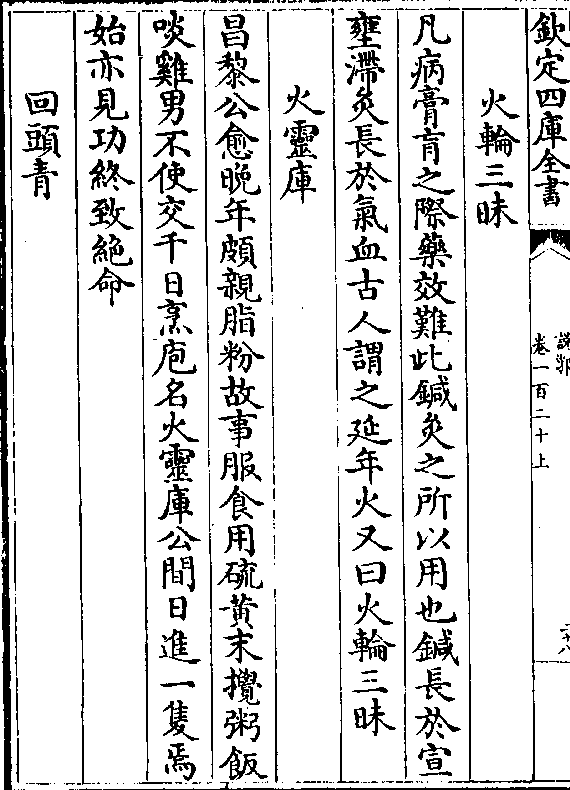 欽定四庫全書
說郛
卷一百二十上
二十八
火輪三昧
凡病膏肓之際藥效難比鍼灸之所以用也鍼長於宣
壅滯灸長於氣血古人謂之延年火又曰火輪三昧
火靈庫
昌黎公愈晚年頗親脂粉故事服食用硫黃末攪粥飯
啖雞男不使交千日烹庖名火靈庫公間日進一隻焉
始亦見功終致絶命
回頭青